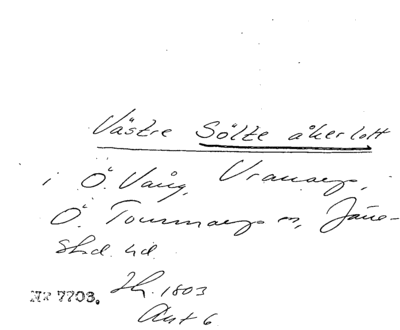 Västre Sölte åkerlott
i Ö. Vång, Vranarp,
Ö. Tommarps sn, Järre-
stad hd.
Nr 7703. Lh. 1803
Akt 6